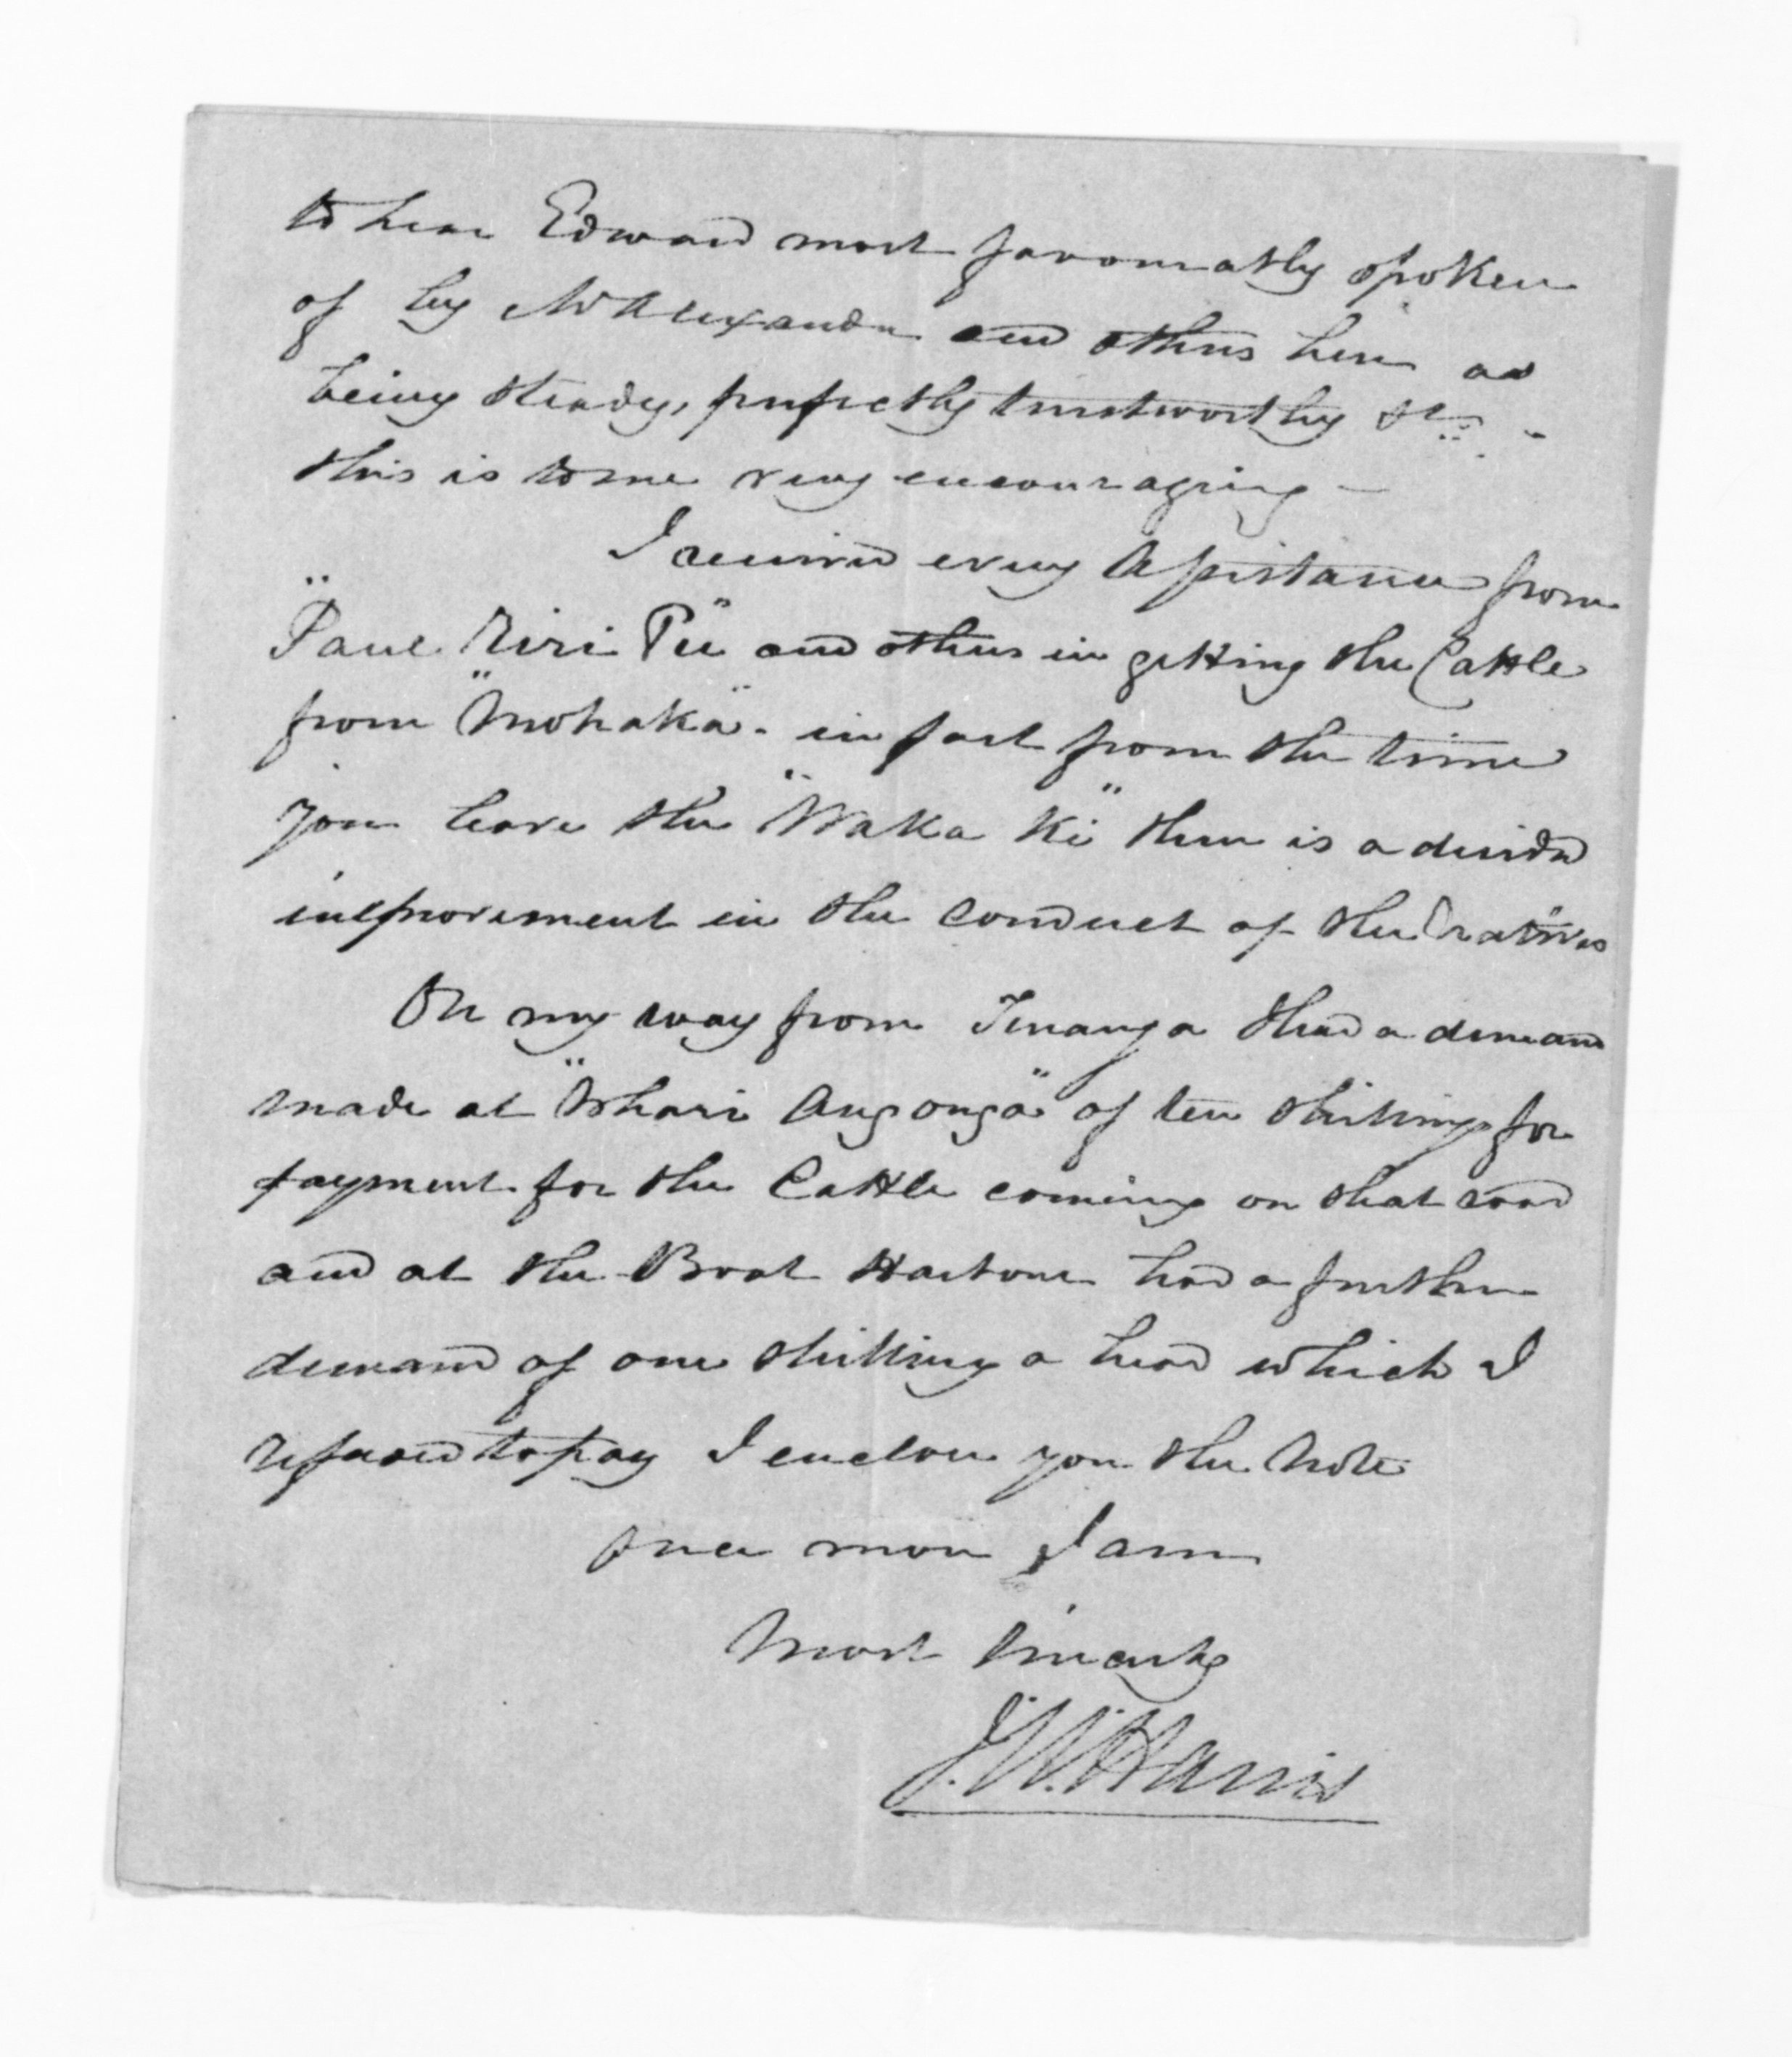 to hear Edward most favourably spoken
of by Mr Alexander and others here as
being steady, perfectly trustworthy &c -
this is to me very encouraging -
I received every assistance from
"Paul Riri Pu" and others in getting the Cattle
from "Mohaka". in fact from the time
you leave the "Waka Ki" there is a decided
improvement in the conduct of the natives
On my way from Turanga I had a demand
made at "Whari Angonga" of ten shillings for
payment for the Cattle coming on that road
and at the Boat Harbour had a further
demand of one shilling a head which I
refused to pay I enclose you the note
once more I am
Most sincerely
J. W. Harris